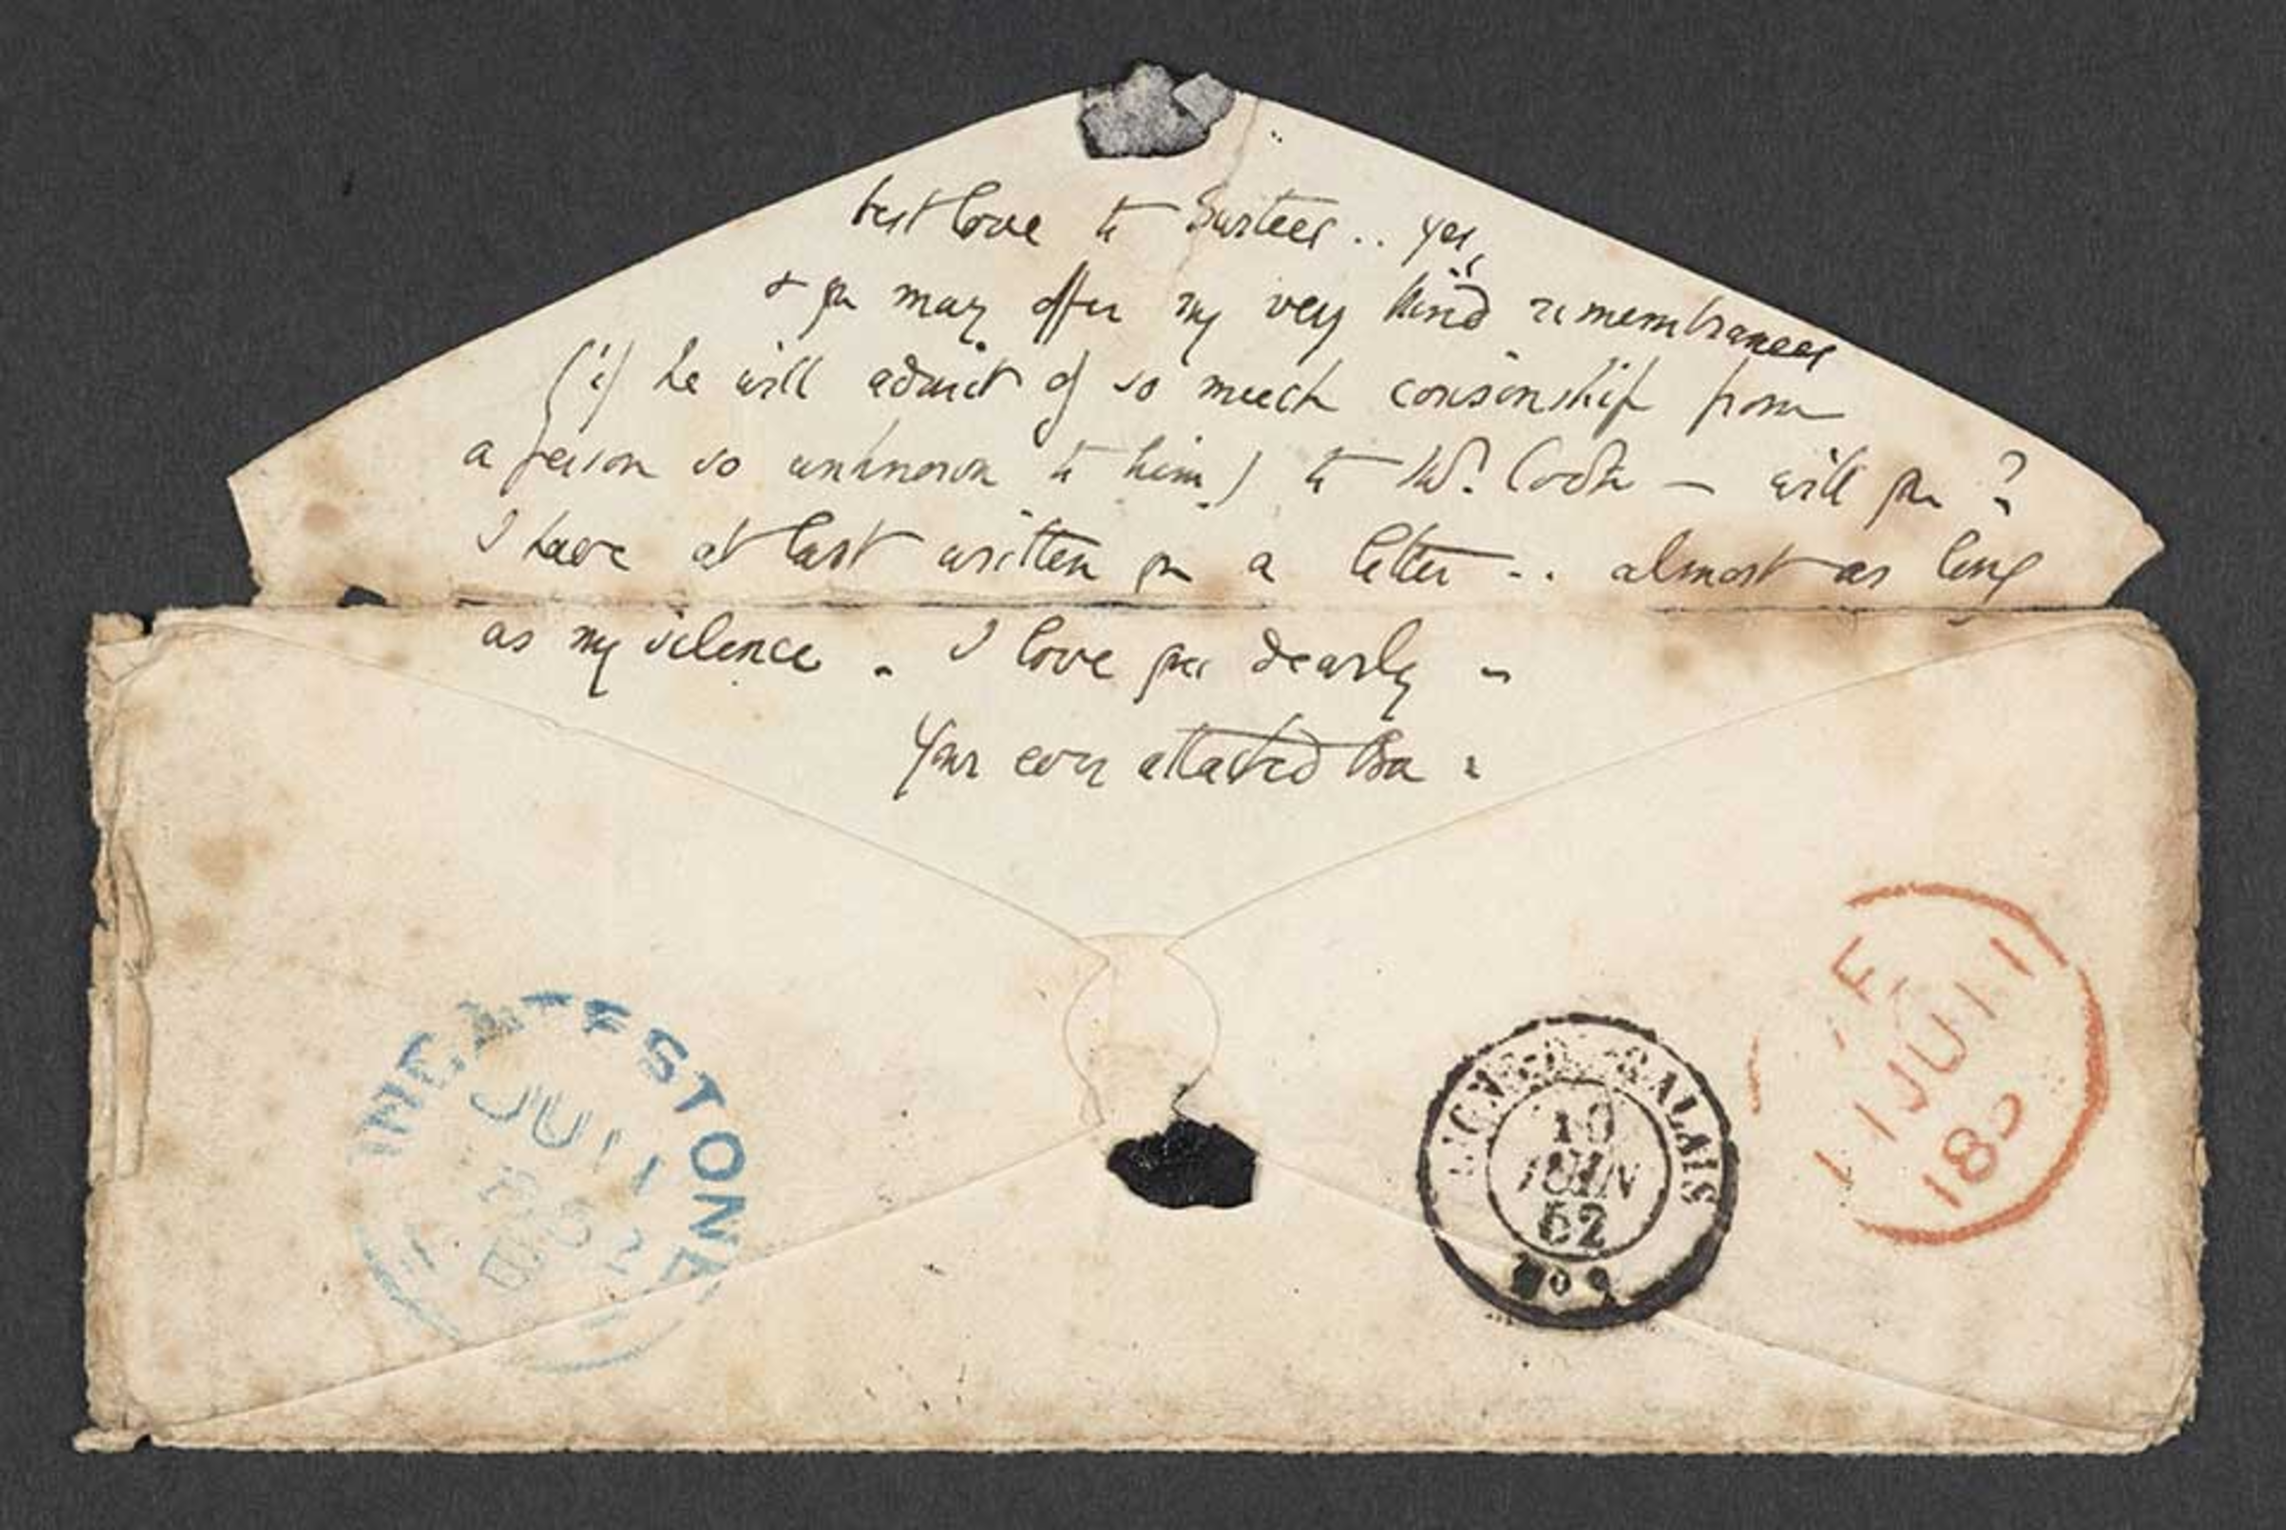 best love to Surtees .. yes,
& you may offer my very kind remembrances
(if he will admit of so much cousinship from
a person so unknown to him) to Mr. Cook — will you?
I have at last written you a letter .. almost as long
as my silence. I love you dearly -
Your ever attached Ba -
INGATESTONE
JU 11
1852
LIGNE-DE-CALAIS
10
JUIN
52
No 2
11 JU 11
185